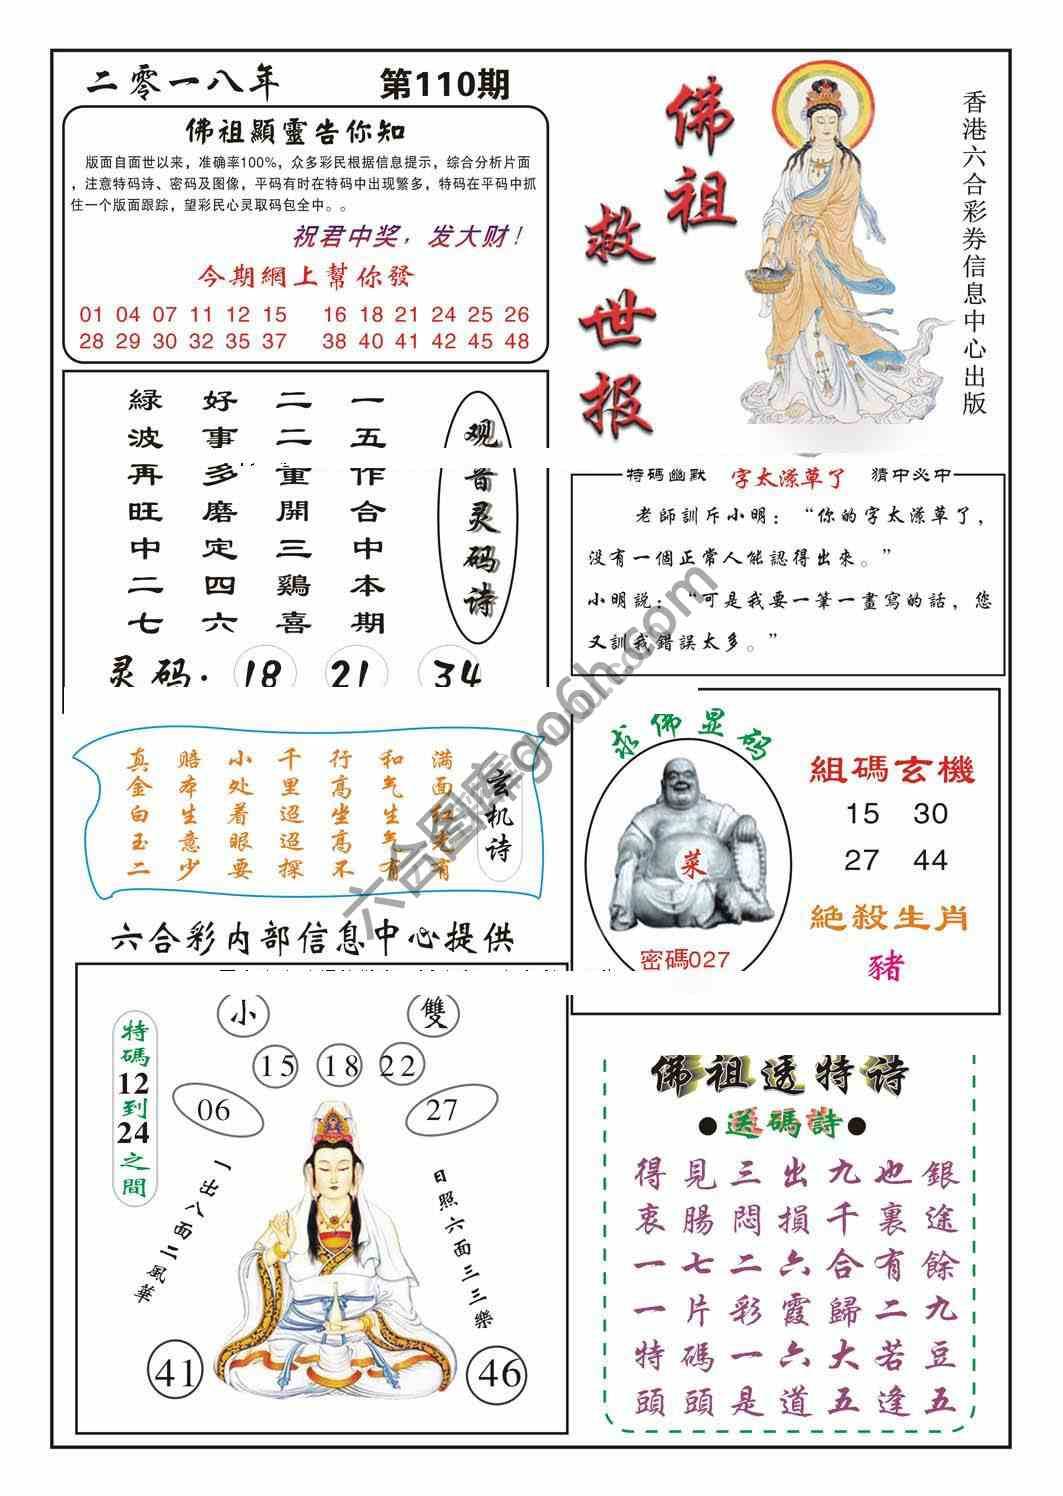 二零一八年 第110期
佛祖顯靈告你知
版面自面世以来，准确率100%，众多彩民根据信息提示，综合分析片面
，注意特码诗、密码及图像，平码有时在特码中出现繁多，特码在平码中抓
住一个版面跟踪，望彩民心灵取码包全中。。
祝君中奖，发大财！
今期網上幫你發
01 04 07 11 12 15 16 18 21 24 25 26
28 29 30 32 35 37 38 40 41 42 45 48
佛祖
救世报
香港六合彩券信息中心出版
观音灵码诗
一五作合中本期
二二重開三鷄喜
好事多磨定四六
緑波再旺中二七
灵码. 18 21 34
特碼幽默 字太潦草了 猜中必中
老師訓斥小明：“你的字太潦草了，
没有一個正常人能認得出來。”
小明説：“可是我要一筆一畫寫的話，您
又訓我錯誤太多。”
玄机诗
满面红光有
和气生气有
行高坐高不
千里迢迢探
小处着眼要
赔本生意少
真金白玉二
求佛显码
菜
密碼027
組碼玄機
15 30
27 44
絶殺生肖
豬
六合彩内部信息中心提供
特碼12到24之間
小 雙
15 18 22
06 27
一出八面二風華
日照六面三三樂
41 46
佛祖透特诗
●送碼詩●
得見三出九也銀
衷腸悶損千裏途
一七二六合有餘
一片彩霞歸二九
特碼一六大若豆
頭頭是道五逢五
六合图库go6h.com